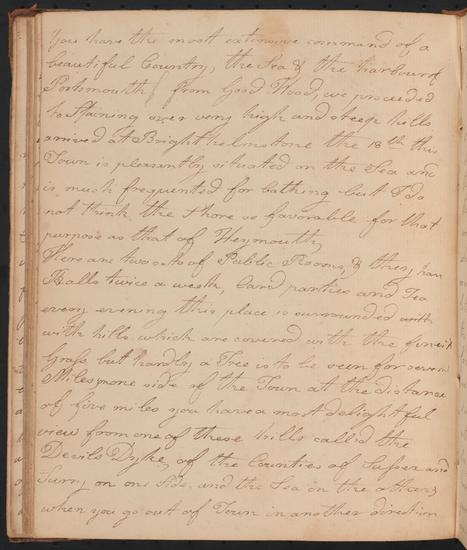 You have the most extensive command of a
beautiful Country, the Sea & the harbour of
Portsmouth from Good Wood, we proceeded
to Staining over very high and steep hills
arrived at Brighthelmstone the 18th this
Town is pleasantly situated on the Sea and
is much frequented for bathing but I do
not think the Shore so favorable for that
purpose as that of Weymouth,
There are two sets of Public Rooms, & they have
Balls twice a week, Card parties and Tea
every evening this place is surrounded with
with hills which are covered with the finest
Grass but hardly a Tree is to be seen for several
Miles, one side of the Town at the distance
of five miles you have a most delightful
view from one of these hills called the
Devils Dyke, of the Counties of Sussex and
Surry, on one side, and the Sea on the other,
when you go out of Town in another direction